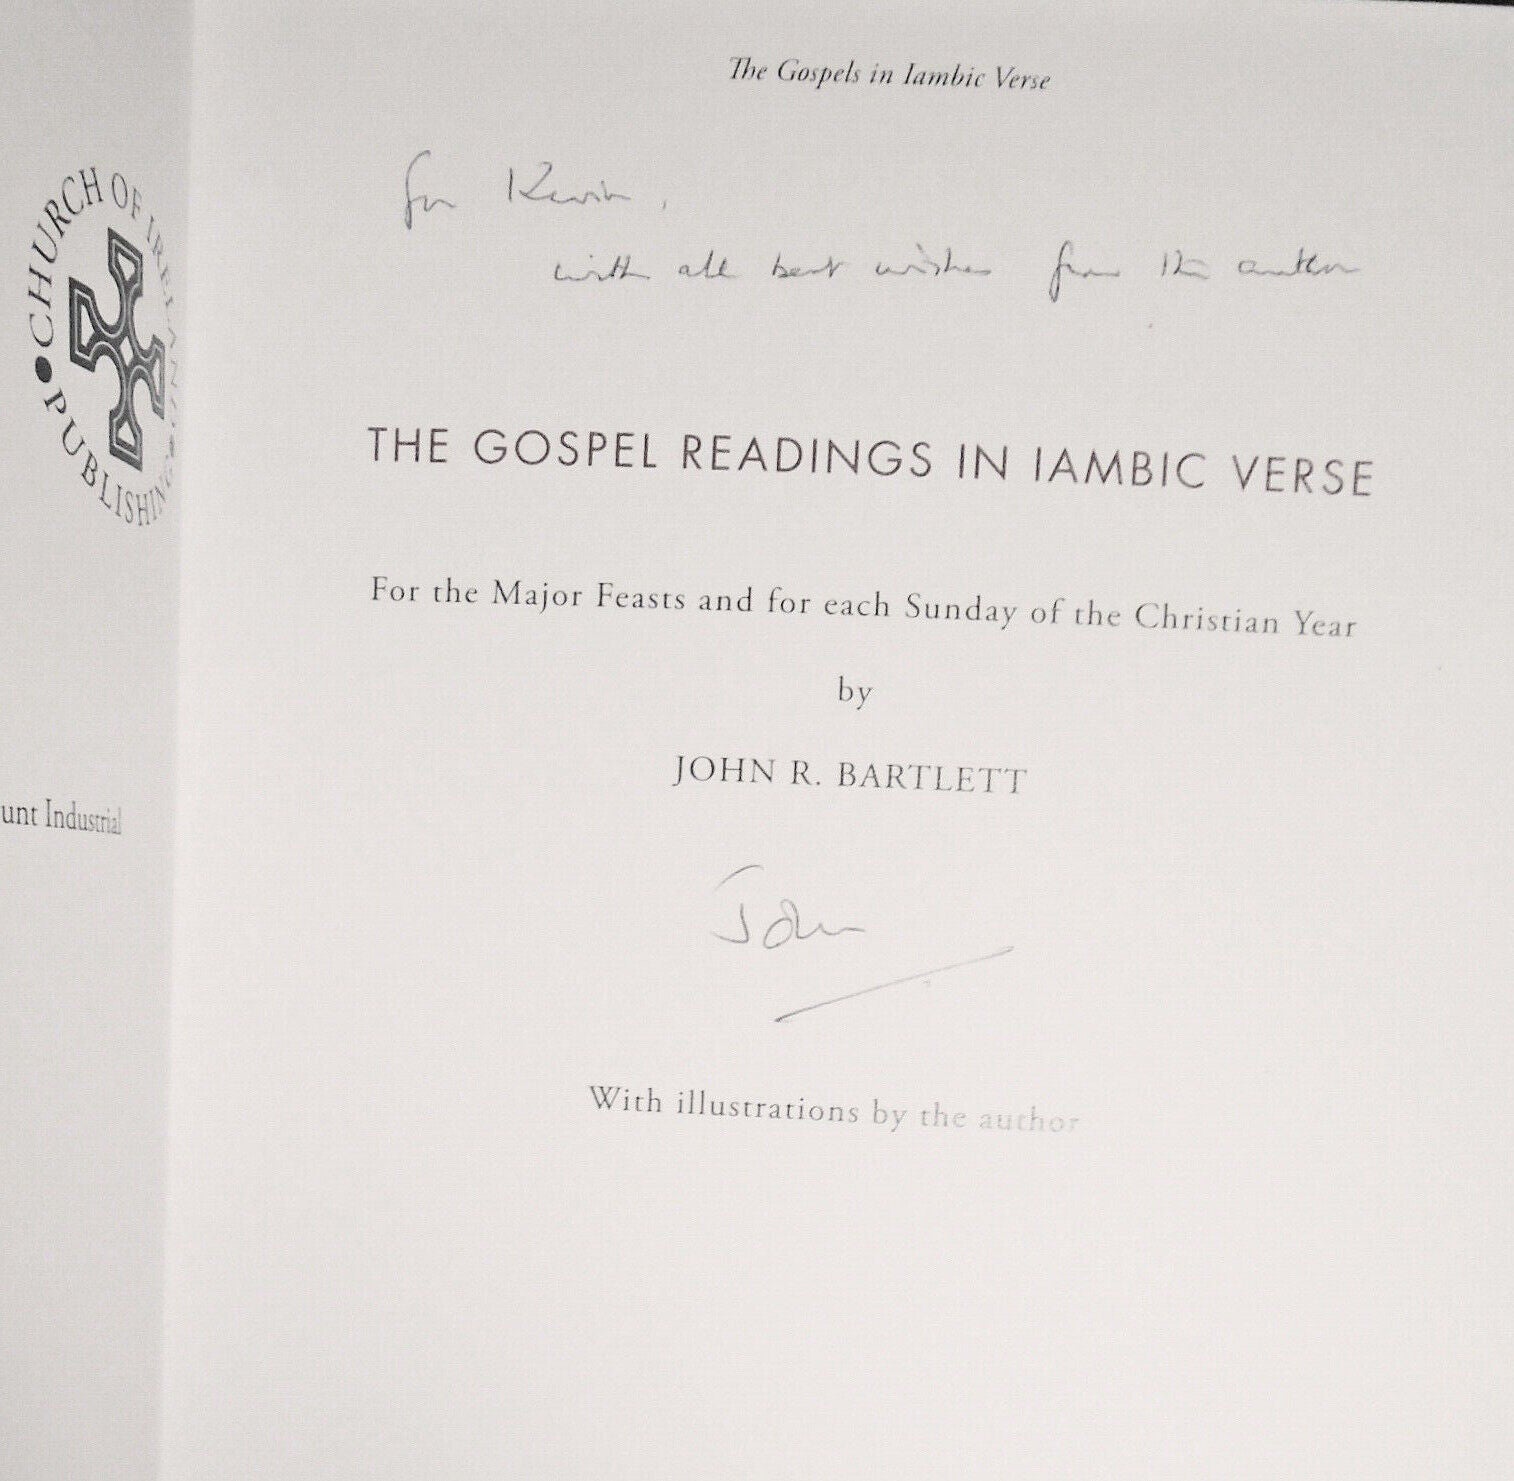 CHURCH OF IRELAND
PUBLISHING
unt Industrial
The Gospels in Iambic Verse
for Kevin,
with all best wishes from the author
THE GOSPEL READINGS IN IAMBIC VERSE
For the Major Feasts and for each Sunday of the Christian Year
by
JOHN R. BARTLETT
John
With illustrations by the author